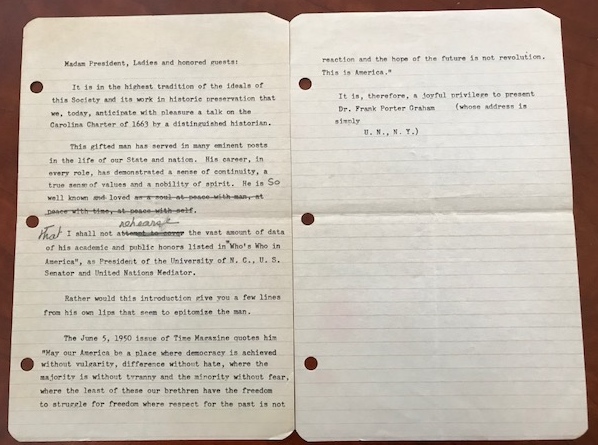 Madam President, Ladies and honored guests:
It is in the highest tradition of the ideals of
this Society and its work in historic preservation that
we, today, anticipate with pleasure a talk on the
Carolina Charter of 1663 by a distinguished historian.
This gifted man has served in many eminent posts
in the life of our State and nation. His career, in
every role, has demonstrated a sense of continuity, a
true sense of values and a nobility of spirit. He is So
well known and loved as a soul at peace with man, at
peace with time, at peace with self.
rehearse
that I shall not attempt to cover the vast amount of data
of his academic and public honors listed in "Who's Who in
America", as President of the University of N. C., U. S.
Senator and United Nations Mediator.
Rather would this introduction give you a few lines
from his own lips that seem to epitomize the man.
The June 5, 1950 issue of Time Magazine quotes him
"May our America be a place where democracy is achieved
without vulgarity, difference without hate, where the
majority is without tyranny and the minority without fear,
where the least of these our brethren have the freedom
to struggle for freedom where respect for the past is not
reaction and the hope of the future is not revolution.
This is America."
It is, therefore, a joyful privilege to present
Dr. Frank Porter Graham (whose address is
simply
U. N., N. Y.)